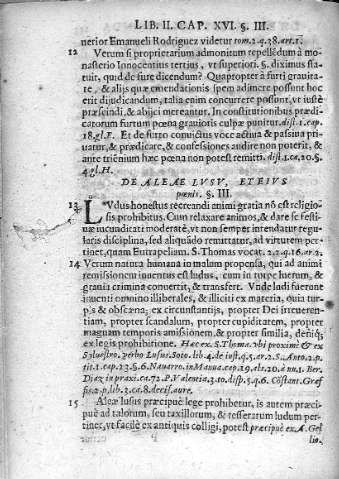 LIB. II. CAP. XVI. §. III.
nerior Emanueli Rodriguez videtur tom. 2. q. 38. art. 1.
12 Verum si proprietarium admonitum repellẽdum à mo-
nasterio Innocentius tertius, vt superiori. §. diximus sta-
tuit, quid de fure dicendum? Quapropter à furti grauita-
te, & alijs quæ emendationis spem adimere possunt hoc
erit dijudicandum, talia enim concurrere possunt, vt iustè
præscindi, & abijci mereantur. In constitutionibus prædi-
catorum furtum pœna grauioris culpæ punitur. dist. 1. cap.
18. gl. F. Et de furto conuictus voce actiua & passiua pri-
uatur, & prædicare, & confessiones audire non poterit, &
ante triẽnium hæc pœna non potest remitti. dist. 1. ca. 20. §.
4. gl. H.
DE ALEAE LVSV, ET EIVS
pœnis. §. III.
13 LVdus honestus recreandi animi gratia nõ est religio-
sis prohibitus. Cum relaxare animos, & dare se festi-
uæ iucunditati moderatè, vt non semper intendatur regu-
laris disciplina, sed aliquãdo remittatur, ad virtutem per-
tinet, quam Eutrapeliam. S. Thomas vocat. 2. 2. q. 16. ar. 2.
14 Verum natura humana in malum propensa, qui ad animi
remissionem inuentus est ludus, cum in turpe luerum, &
grandia crimina conuertit, & transfert. Vnde ludi fuerunt
inuenti omnino illiberales, & illiciti ex materia, quia tur-
pis & obscæna; ex circunstantijs, propter Dei irreueren-
tiam, propter scandalum, propter cupiditatem, propter
magnam temporis amissionem, & propter similia, deniq;
ex legis prohibitione. Hæc ex S. Thoma vbi proximè & ex
Syluestro. verbo Lusus. Soto. lib. 4. de iust. q. 5. ar. 2. S. Anto. 2. p.
tit. 1. cap. 23. §. 6. Nauarro. in Manua. cap. 19. als. 20. à nu. 1. Ber.
Diaz in praxi. ca. 72. P. Valentia. 3. to. disp. 5. q. 6. Cõstant. Græf
fis. 2. p. lib. 3. ca. 8. decis. aure.
15 Aleæ lusus præcipuè lege prohibetur, is autem præci-
puè ad talorum, seu taxillorum, & tesseratum ludum per-
tinet, vt facilè ex antiquis colligi, potest præcipuè ex A. Gel
lio.